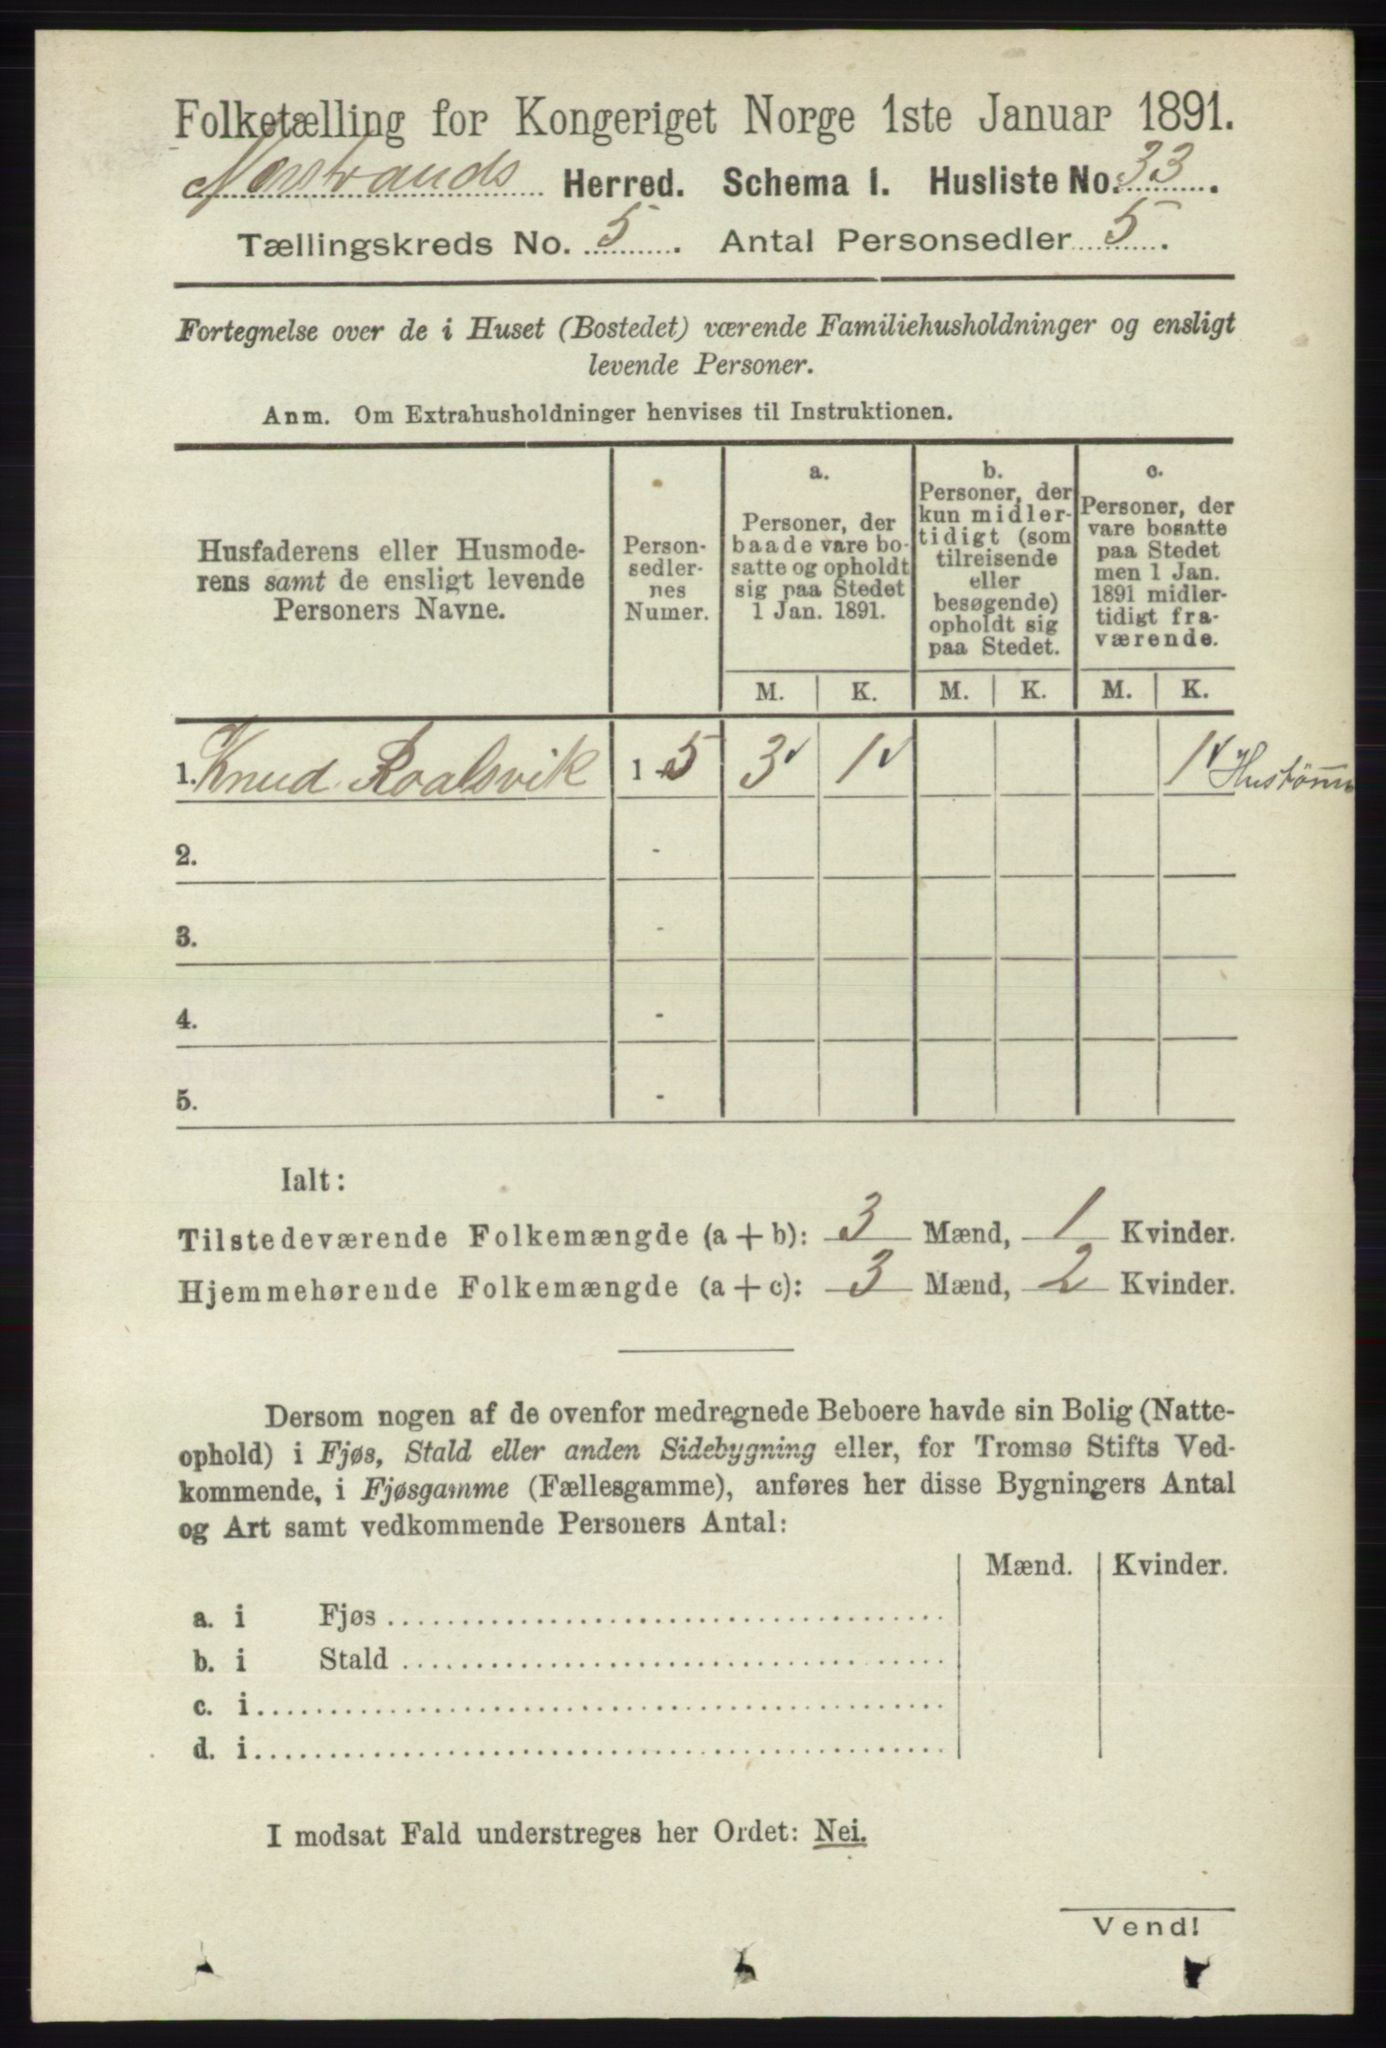 Folketælling for Kongeriget Norge 1ste Januar 1891.
Nerstrands Herred. Schema I. Husliste No. 33.
Tællingskreds No. 5. Antal Personsedler 5.
Fortegnelse over de i Huset (Bostedet) værende Familiehusholdninger og ensligt
levende Personer.
Anm. Om Extrahusholdninger henvises til Instruktionen.
Husfaderens eller Husmode-
rens samt de ensligt levende
Personers Navne.
Person-
sedler-
nes
Numer.
a.
Personer, der
baade vare bo-
satte og opholdt
sig paa Stedet
1 Jan. 1891.
b.
Personer, der
kun midler-
tidigt (som
tilreisende
eller
besøgende)
opholdt sig
paa Stedet.
c.
Personer, der
vare bosatte
paa Stedet
men 1 Jan.
1891 midler-
tidigt fra-
værende.
M. K. M. K. M. K.
1. Knud Roalsvik 1-5 3 1 1
2. -
3. -
4. -
5. -
Ialt:
Tilstedeværende Folkemængde (a + b): 3 Mænd, 1 Kvinder.
Hjemmehørende Folkemængde (a + c): 3 Mænd, 2 Kvinder.
Dersom nogen af de ovenfor medregnede Beboere havde sin Bolig (Natte-
ophold) i Fjøs, Stald eller anden Sidebygning eller, for Tromsø Stifts Ved-
kommende, i Fjøsgamme (Fællesgamme), anføres her disse Bygningers Antal
og Art samt vedkommende Personers Antal:
Mænd. Kvinder.
a. i Fjøs
b. i Stald
c. i
d. i
I modsat Fald understreges her Ordet: Nei.
Vend!